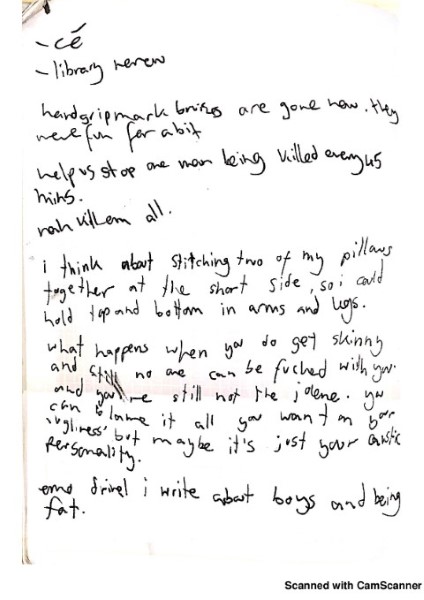 - cé
- library renew
handgripmark bruises are gone now. they
were fun for a bit
help us stop one man being killed every 45
mins.
nah kill em all.
i think about stitching two of my pillows
together at the short side, so i could
hold top and bottom in arms and legs.
what happens when you do get skinny
and still no one can be fucked with you.
and you're still not the jolene. you
can blame it all you want on your
'ugliness' but maybe it's just your
personality.
emo drivel i write about boys and being
fat.
Scanned with CamScanner